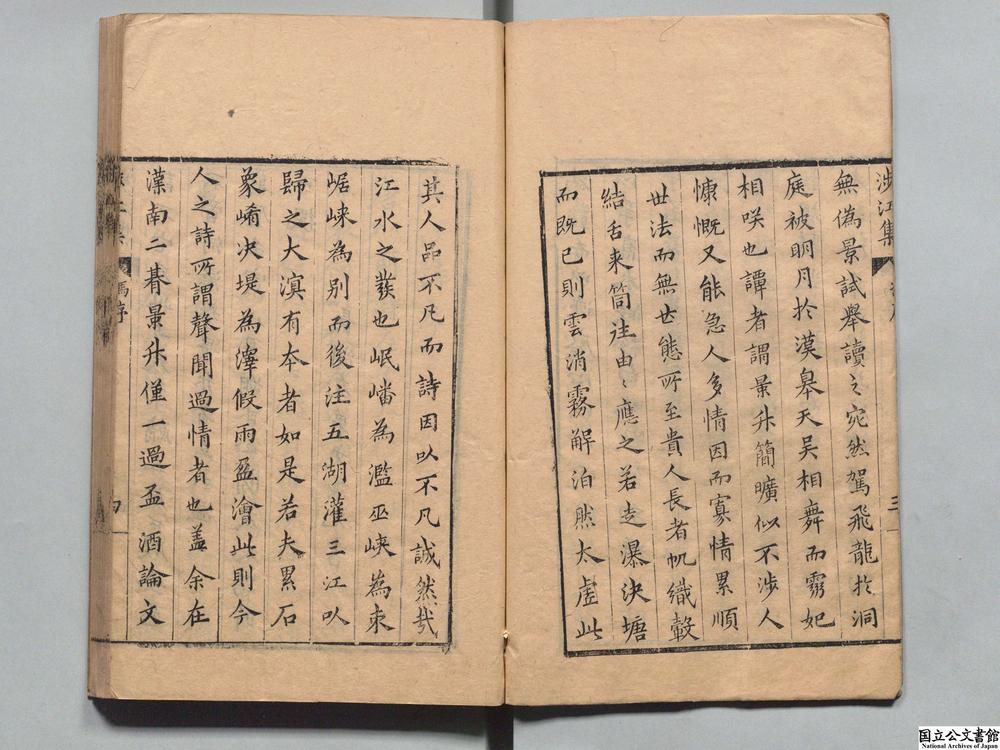 涉江集
三
無偽景試舉讀之宛然駕飛龍於洞
庭被明月於漢皋天吴相舞而宓妃
相咲也譚者謂景升簡曠似不涉人
慷慨又能急人多情因而寡情累順
世法而無世態所至貴人長者帆織轂
結舌来筒注由〻應之若走瀑决塘
而既已則雲消霧解泊然太虛此
其人品不凡而詩因以不凡誠然哉
江水之發也岷嶓為濫巫峽為束
崌崍為别而後注五湖灌三江以
歸之大溟有夲者如是若夫累石
象崤决堤為滹假雨盈澮此則今
人之詩所謂聲聞過情者也盖余在
漢南二朞景升僅一過盃酒論文
馮序
国立公文書館
National Archives of Japan